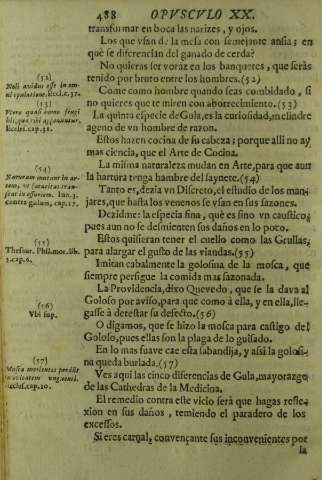 488 OPVSCVLO XX.
transformar en boca las narizes, y ojos.
Los que vsan de la mesa con semejante ansia; en
què se diferencian del ganado de cerda?
No quieras ser vorâz en los banquetes, que serâs
tenido por bruto entre los hombres.(52)
Come como hombre quando seas combidado, si
no quieres que te miren con aborrecimiento.(53)
La quinta especie de Gula, es la curiosidad, in clinde
ageno de vn hombre de razon.
Estos hazen cocina de su cabeza; porque alli no ay
mas ciencia, que el Arte de Cocina.
La misma naturaleza mudan en Arte, para que aun
la hartura tenga hambre del saynete.(54)
Tanto es, dezia vn Discreto, el estudio de los man-
jares, que hasta los venenos se vsan en sus sazones.
Dezidme: la especia fina, què es sino vn caustico;
pues aun no se desmienten sus daños en lo poco.
Estos quisieran tener el cuello como las Grullas,
para alargar el gusto de las viandas.(55)
Imitan cabalmente la golosina de la mosca, que
siempre persigue la comida mas sazonada.
La Providencia, dixo Quevedo, que se la dava al
Goloso por aviso, para que como â ella, y en ella, lle-
gasse â detestar su defecto.(56)
O digamos, que se hizo la mosca para castigo del
Goloso, pues ellas son la plaga de lo guisado.
En lo mas suave cae esta sabandija, y assi la golosi-
na queda burlada.(57)
Ves aqui las cinco diferencias de Gula, mayorazgo
de las Cathedras de la Medicina.
El remedio contra este vicio serà que hagas refle-
xion en sus daños, temiendo el paradero de los
excessos.
Si eres carnal, convençante sus inconvenientes por
la
(52)
Noli avidus esse in om-
ni epulatione. Eccli. c. 37.
(53)
Vtere quasi homo frugi
his, quæ tibi apponuntur.
Ecclsi. cap. 31.
(54)
Naturam mutant in ar-
tem, vt saturitas tran-
seat in esuriem. Inn. 3.
contra gulam, cap. 17.
(55)
Thesaur. Phil. mor. lib.
1. cap. 6.
(56)
Vbi sup.
(57)
Musca morientes perdūt
suavitatem vnguenti.
Ecclsi. cap. 10.